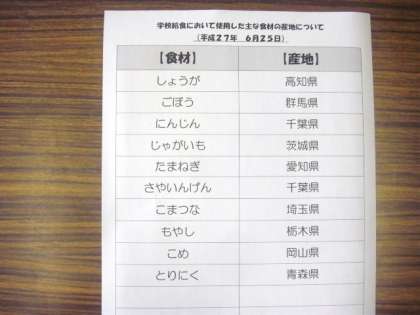 学校給食において使用した主な食材の産地について
（平成２７年　６月２５日）
【食材】　【産地】
しょうが　高知県
ごぼう　群馬県
にんじん　千葉県
じゃがいも　茨城県
たまねぎ　愛知県
さやいんげん　千葉県
こまつな　埼玉県
もやし　栃木県
こめ　岡山県
とりにく　青森県